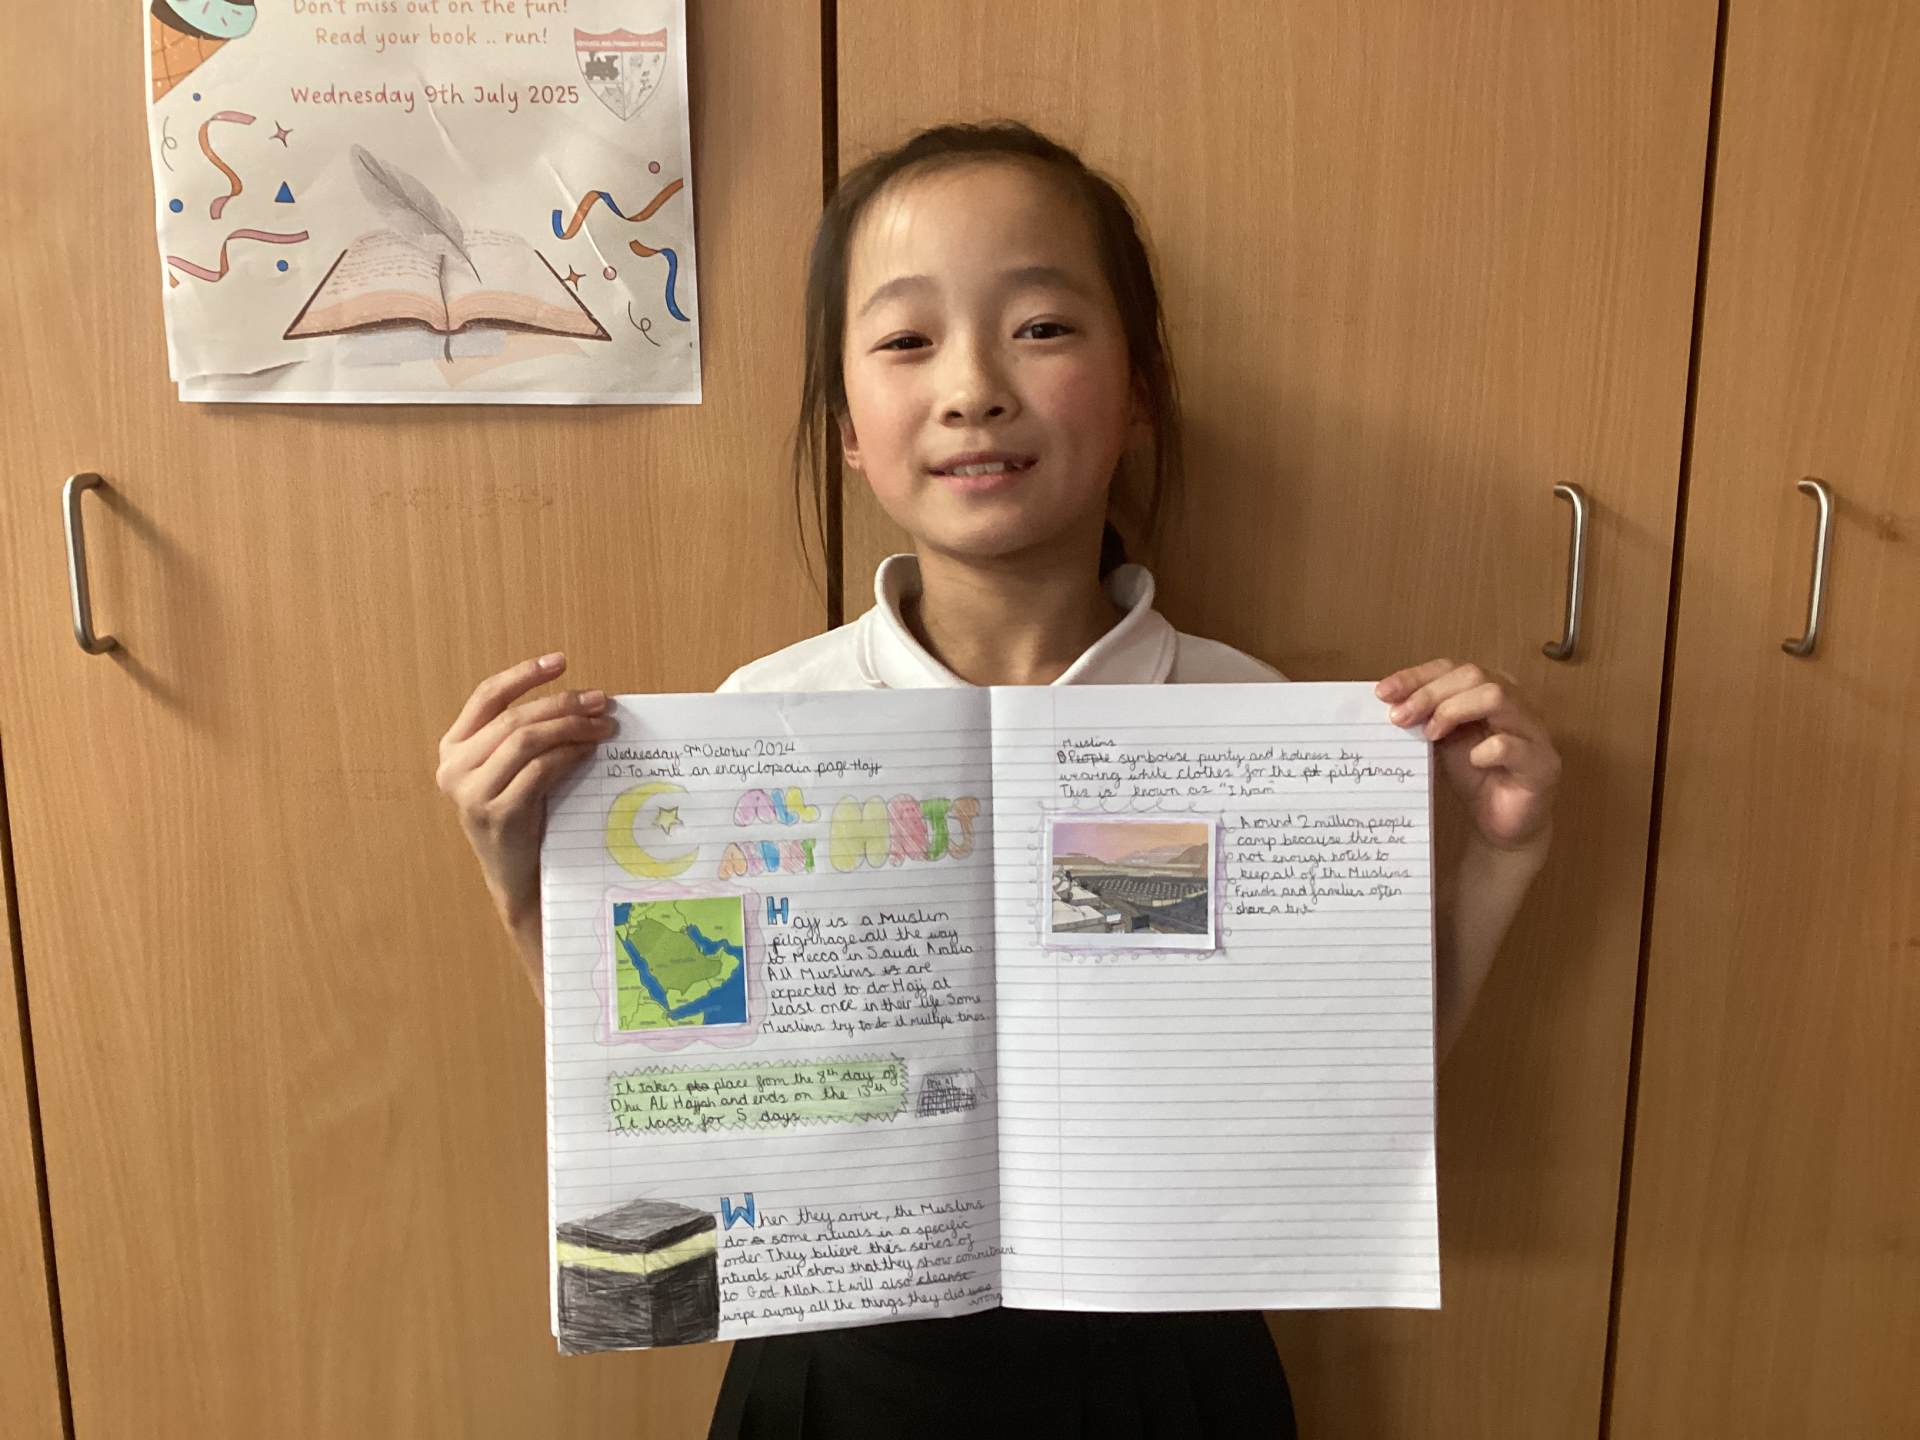 Don't miss out on the fun!
Read your book .. run!
Wednesday 9th July 2025
Wednesday 9th October 2024
LO: To write an encyclopedia page-Hajj
ALL
ABOUT HAJJ
Hajj is a Muslim
pilgrimage all the way
to Mecca in Saudi Arabia
All Muslims is are
expected to do Hajj at
least once in their life Some
Muslims try to do it multiple times.
It takes pla place from the 8th day of
Dhu Al Hajjah and ends on the 13th
It lasts for 5 days
When they arrive, the Muslims
do a some rituals in a specific
order They believe this series of
rituals will show that they show commitment
to God-Allah It will also cleanse
wipe away all the things they did was
wrong
Muslims
People symbolise purity and holiness by
wearing white clothes for the pil pilgrimage
This is known as "Ihram"
Around 2 million people
camp because there are
not enough hotels to
keep all of the Muslims
Friends and families often
share a tent